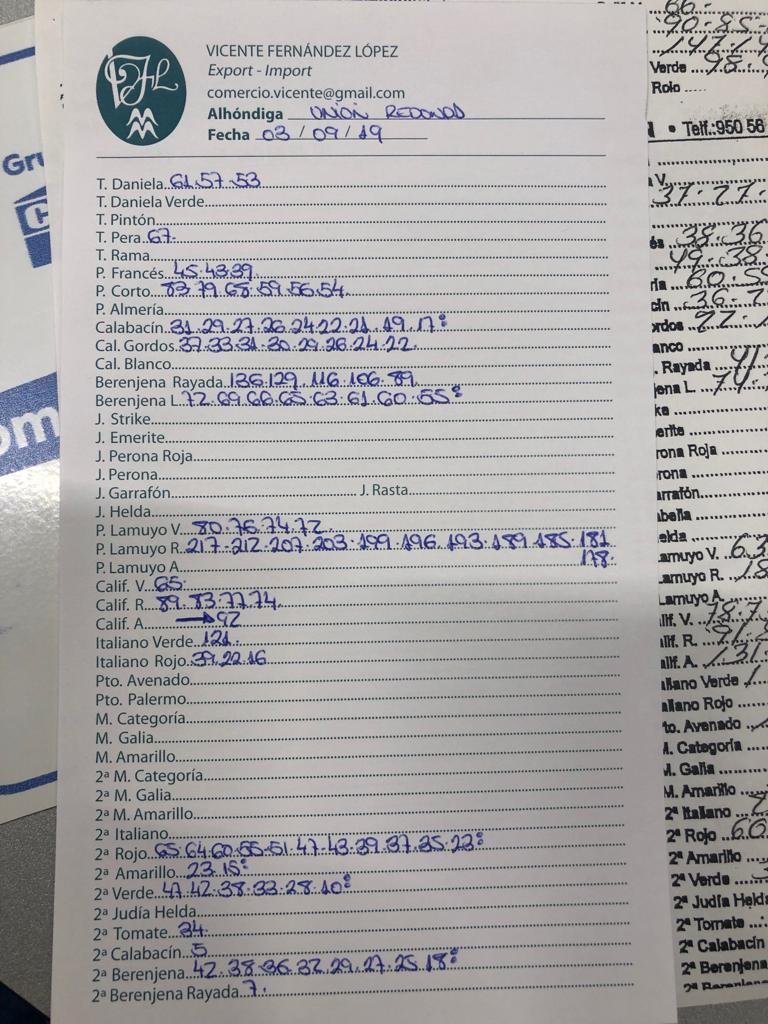 VICENTE FERNÁNDEZ LÓPEZ
Export - Import
comercio.vicente@gmail.com
Alhóndiga UNIÓN REDONDO
Fecha 03 / 09 / 19
T. Daniela 61.57.53
T. Daniela Verde
T. Pintón
T. Pera 67.
T. Rama
P. Francés 45.43.39
P. Corto 83.79.68.59.56.54
P. Almería
Calabacín 31.29.27.26.24.22.21.19.17
Cal. Gordos 37.33.31.30.29.26.24.22
Cal. Blanco
Berenjena Rayada 136.129.116.106.89
Berenjena L. 72.69.66.65.63.61.60.55
J. Strike
J. Emerite
J. Perona Roja
J. Perona
J. Garrafón J. Rasta
J. Helda
P. Lamuyo V. 80.76.74.72
P. Lamuyo R. 217.212.207.203.199.196.193.189.185.181
178
P. Lamuyo A.
Calif. V. 65
Calif. R. 89.83.77.74
Calif. A. → 92
Italiano Verde 121.
Italiano Rojo 39.22.16
Pto. Avenado
Pto. Palermo
M. Categoría
M. Galia
M. Amarillo
2ª M. Categoría
2ª M. Galia
2ª M. Amarillo
2ª Italiano
2ª Rojo 65.64.60.55.51.47.43.39.37.35.23
2ª Amarillo 23.15
2ª Verde 47.42.38.33.28.10
2ª Judía Helda
2ª Tomate 34.
2ª Calabacín 5
2ª Berenjena 42.38.36.32.29.27.25.18
2ª Berenjena Rayada 7.
Verde 98
Rolo
Telf.:950 56
37.27
38.36
49.38
60.5
36
22
Rayada
Roja
Lamuyo A.
Calif. V.
Calif. R.
Calif. A. 131
Italiano Verde
Italiano Rojo
Pto. Avenado
M. Categoría
M. Galia
M. Amarillo
2ª Italiano
2ª Rojo 60
2ª Amarillo
2ª Verde
2ª Judía Helda
2ª Tomate
2ª Calabacín
2ª Berenjena